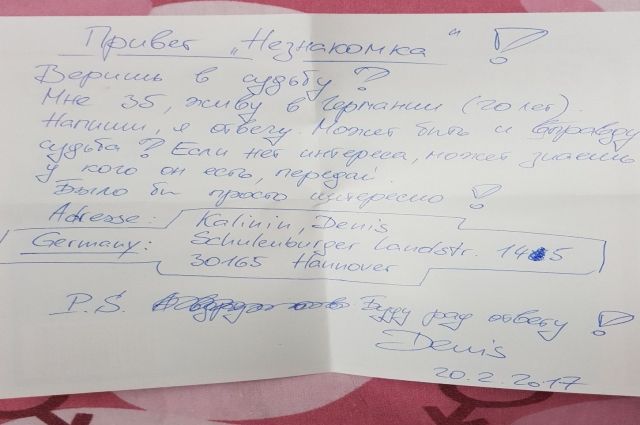 Привет „Незнакомка“!
Веришь в судьбу?
Мне 35, живу в Германии (20 лет).
Напиши, я отвечу. Может быть и вправду
судьба? Если нет интереса, может знаешь
у кого он есть, передай.
Было бы просто интересно!
Adresse: Kalinin, Denis
Germany: Schulenburger Landstr. 145
30165 Hannover
P.S. Буду рад ответу!
Denis
20.2.2017